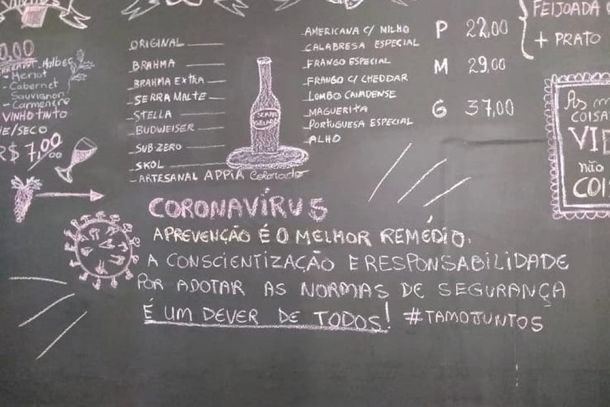 0,00
Merlot
- Cabernet
Sauvignon
- Carmenere
VINHO TINTO
E/SECO
R$ 7,00
ORIGINAL
BRAHMA
BRAHMA EXTRA
SERRA MALTE
STELLA
BUDWEISER
SUB ZERO
SKOL
ARTESANAL APPIA Colorado
AMERICANA C/ MILHO
CALABRESA ESPECIAL
FRANGO ESPECIAL
FRANGO C/ CHEDDAR
LOMBO CANADENSE
MAGUERITA
PORTUGUESA ESPECIAL
ALHO
P 22,00
M 29,00
G 37,00
FEIJOADA
+ PRATO
AS M
COISA
VID
NÃO
COI
CORONAVÍRUS
A PREVENÇÃO É O MELHOR REMÉDIO.
A CONSCIENTIZAÇÃO E RESPONSABILIDADE
POR ADOTAR AS NORMAS DE SEGURANÇA
É UM DEVER DE TODOS! #TAMOJUNTOS